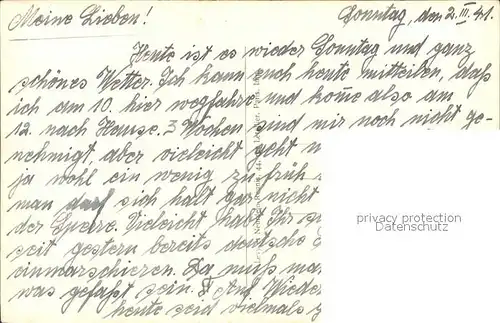 Meine Lieben!
Sonntag, den 2.III.41.
Heute ist es wieder Sonntag und ganz
schönes Wetter. Ich kann euch heute mitteilen, daß
ich am 10. hier wegfahre und kom̄e also am
12. nach Hause. 3 Wochen sind mir noch nicht ge-
nehmigt, aber vieleicht geht
ja wohl ein wenig zu früh
man darf sich halt gar nicht
der Sperre. Vieleicht habt Ihr
seit gestern bereits deutsche
einmarschieren. Da muß ma
was gefaßt sein. Auf Wieder
heute seid vielmals
privacy protection
Datenschutz